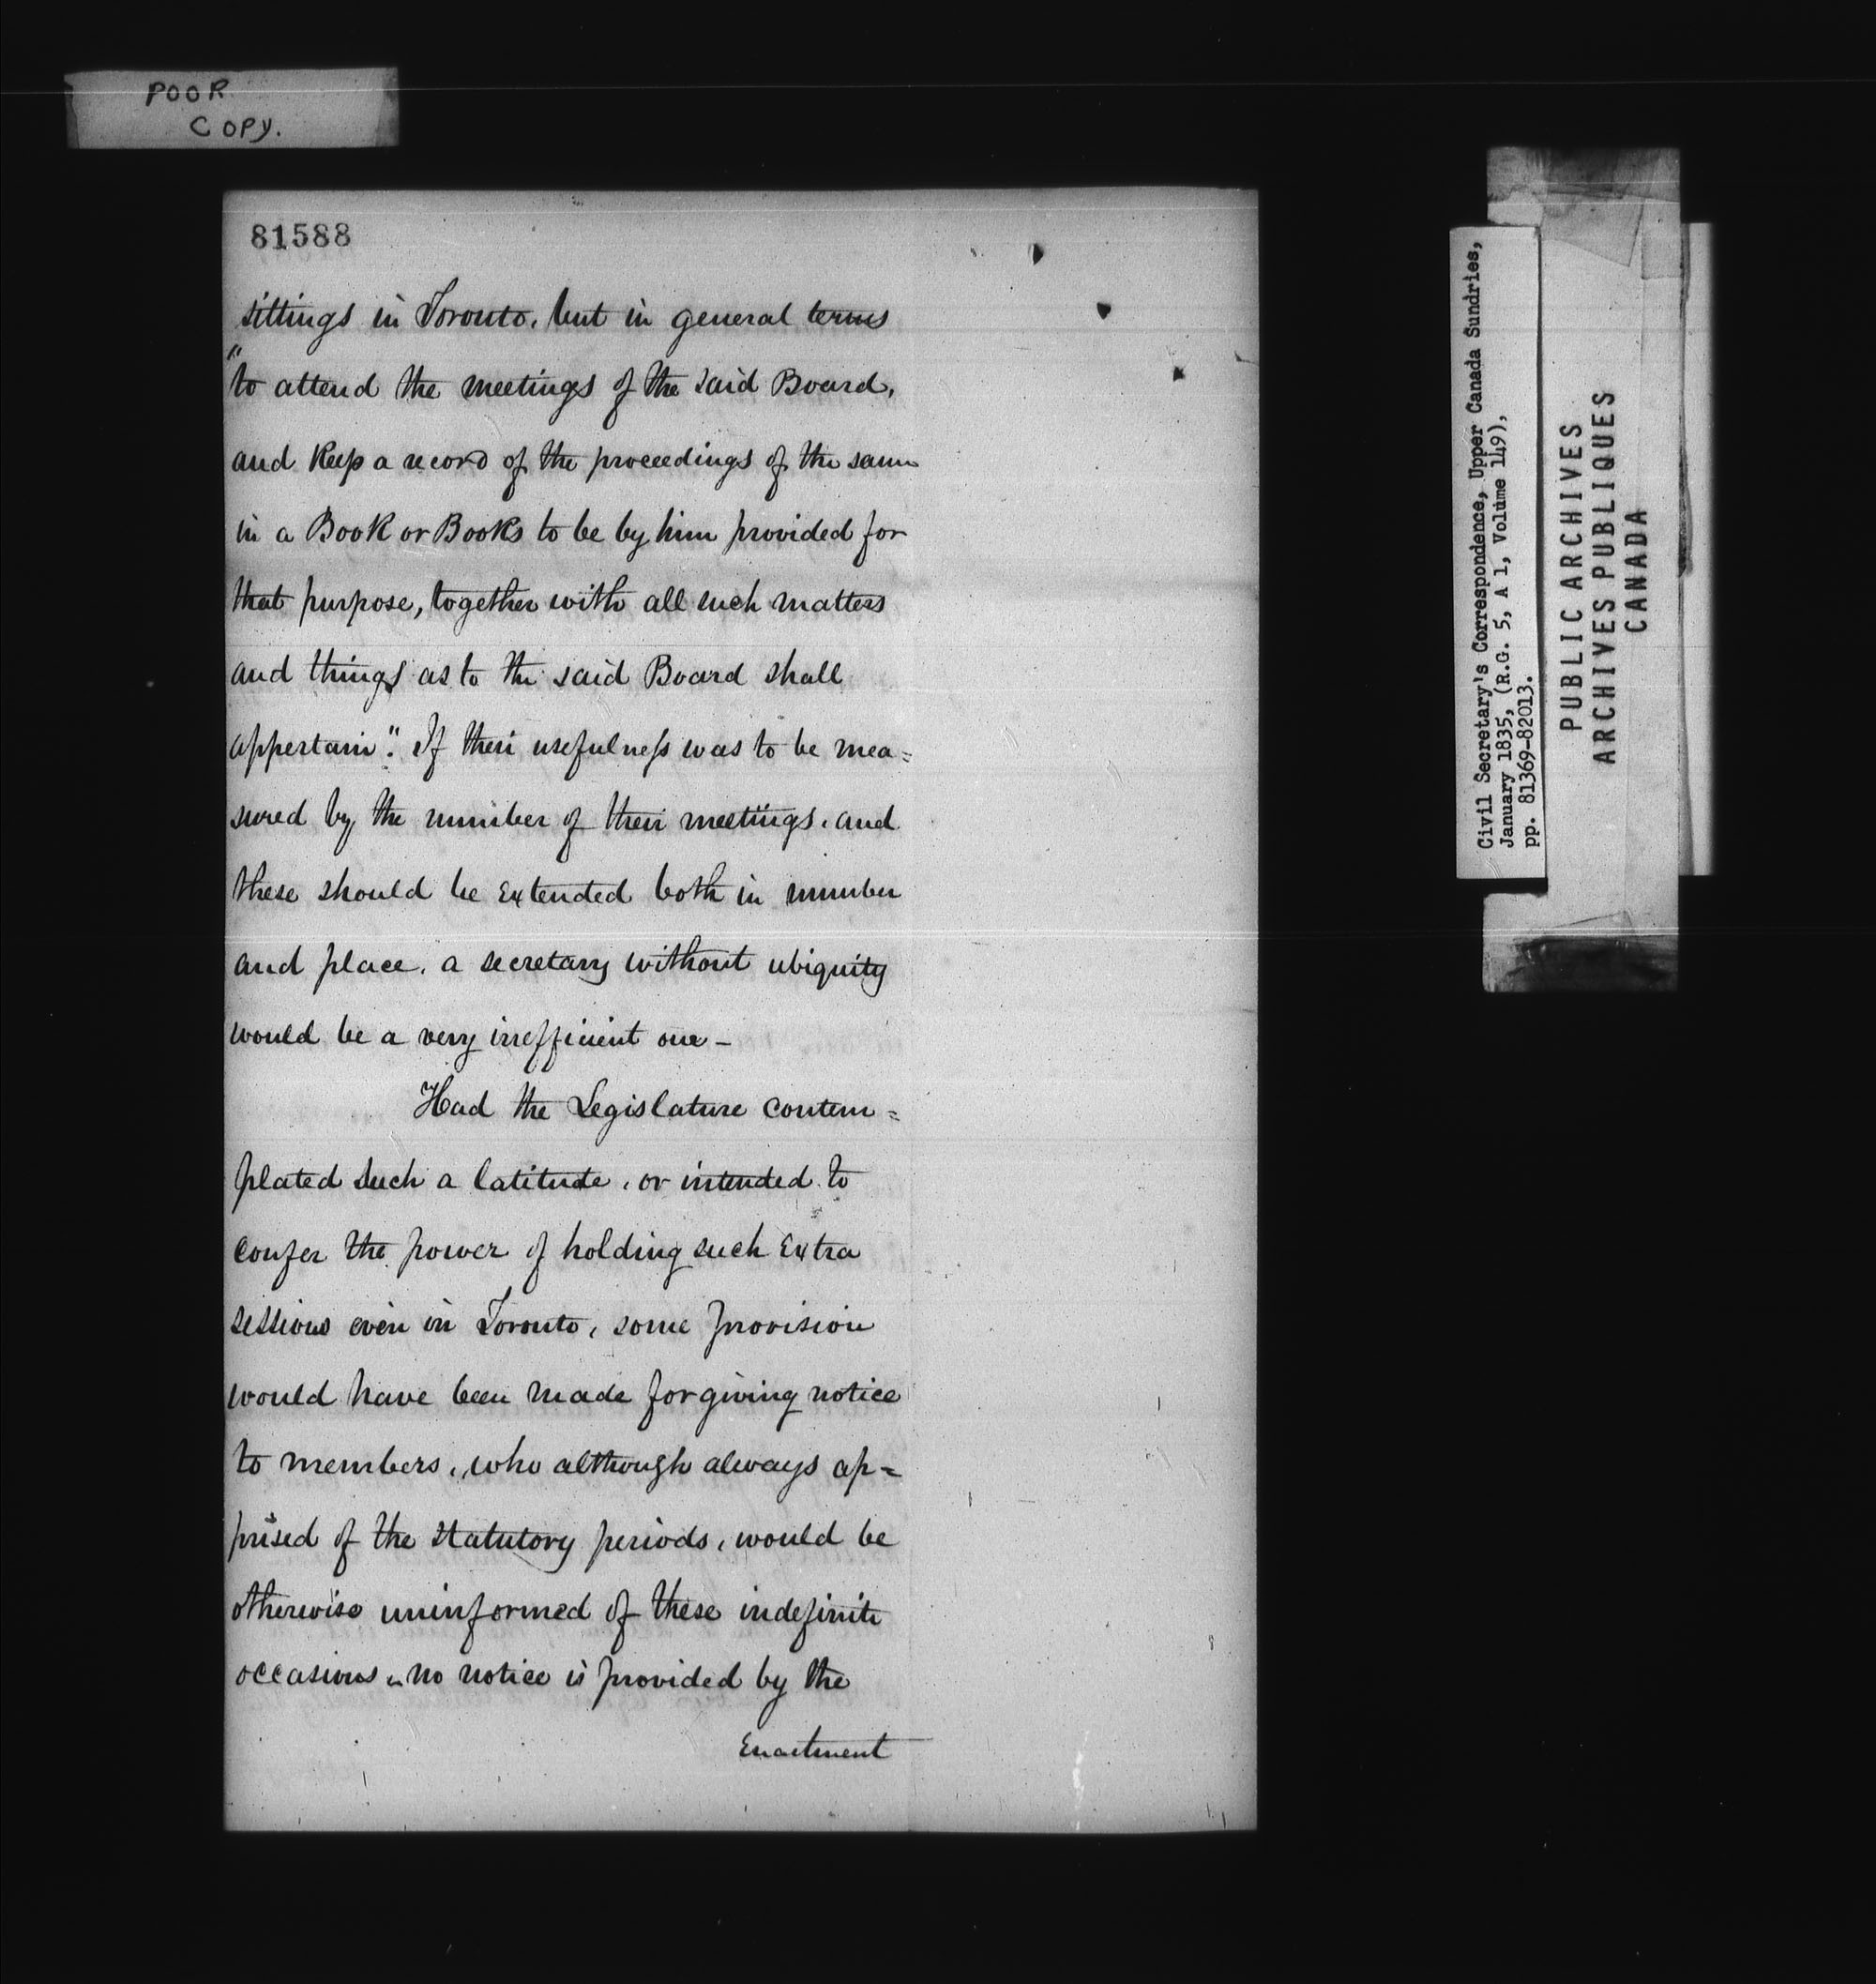 POOR
COPY.
81588
sittings in Toronto, but in general terms
"to attend the meetings of the said Board,
and keep a record of the proceedings of the same
in a Book or Books to be by him provided for
that purpose, together with all such matters
and things as to the said Board shall
appertain". If their usefulness was to be mea=
sured by the number of their meetings, and
these should be extended both in number
and place, a secretary without ubiquity
would be a very inefficient one -
Had the Legislature contem=
plated such a latitude, or intended to
confer the power of holding such Extra
sessions even in Toronto, some provision
would have been made for giving notice
to members, who although always ap=
prised of the statutory periods, would be
otherwise uninformed of these indefinite
occasions, no notice is provided by the
Enactment
Civil Secretary's Correspondence, Upper Canada Sundries,
January 1835, (R.G. 5, A 1, Volume 149),
pp. 81369-82013.
PUBLIC ARCHIVES
ARCHIVES PUBLIQUES
CANADA